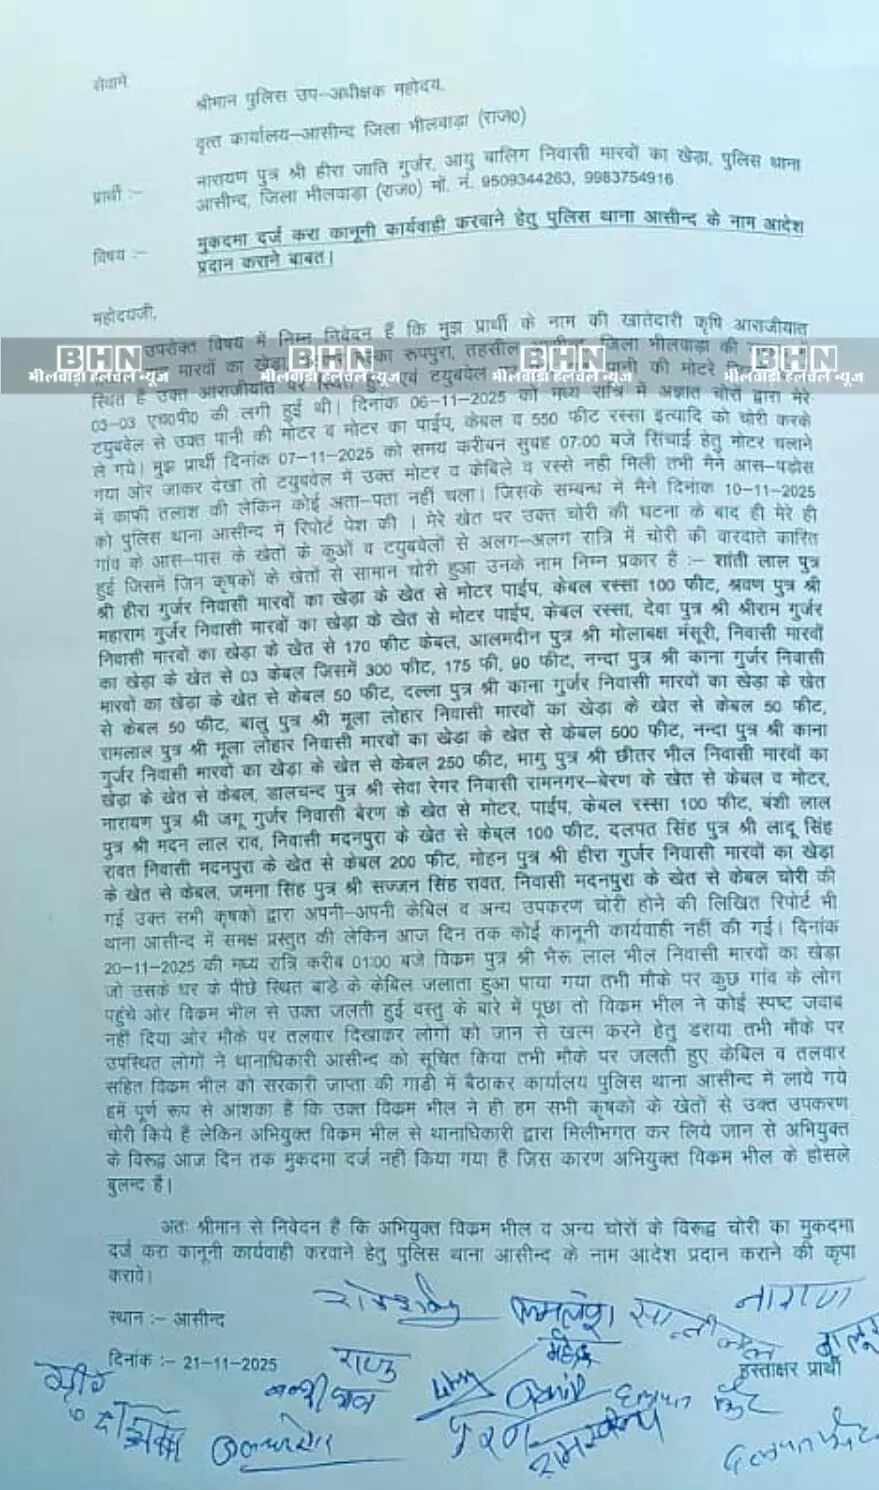 सेवामे
श्रीमान पुलिस उप-अधीक्षक महोदय,
वृत्त कार्यालय-आसीन्द जिला भीलवाड़ा (राज0)
प्रार्थी :- नारायण पुत्र श्री हीरा जाति गुर्जर, आयु बालिग निवासी मारवों का खेड़ा, पुलिस थाना
आसीन्द, जिला भीलवाड़ा (राज0) मों. नं. 9509344263, 9983754916
विषय :- मुकदमा दर्ज करा कानूनी कार्यवाही करवाने हेतु पुलिस थाना आसीन्द के नाम आदेश
प्रदान कराने बाबत।
महोदयजी,
उपरोक्त विषय में निम्न निवेदन हैं कि मुझ प्रार्थी के नाम की खातेदारी कृषि आराजीयात
मारवों का खेड़ा का रूपपुरा, तहसील जिला भीलवाड़ा की
BHN BHN BHN BHN
भीलवाड़ा हलचल न्यूज भीलवाड़ा हलचल न्यूज भीलवाड़ा हलचल न्यूज भीलवाड़ा हलचल न्यूज
स्थित है उक्त आराजीयात पर एवं टयुबवेल पानी की मोटरे
03-03 एच0पी0 की लगी हुई थी। दिनांक 06-11-2025 को मध्य रात्रि में अज्ञात चोरों द्वारा मेरे
टयुबवेल से उक्त पानी की मोटर व मोटर का पाईप, केबल व 550 फीट रस्सा इत्यादि को चोरी करके
ले गये। मुझ प्रार्थी दिनांक 07-11-2025 को समय करीबन सुबह 07:00 बजे सिंचाई हेतु मोटर चलाने
गया ओर जाकर देखा तो टयुबवेल में उक्त मोटर व केबिले व रस्से नही मिली तभी मैने आस-पडोस
में काफी तलाश की लेकिन कोई अता-पता नहीं चला। जिसके सम्बन्ध में मैने दिनांक 10-11-2025
को पुलिस थाना आसीन्द में रिपोर्ट पेश की । मेरे खेत पर उक्त चोरी की घटना के बाद ही मेरे ही
गांव के आस-पास के खेतों के कुओं व टयुबवेलों से अलग-अलग रात्रि में चोरी की वारदाते कारित
हुई जिसमें जिन कृषकों के खेतों से सामान चोरी हुआ उनके नाम निम्न प्रकार है :- शांती लाल पुत्र
श्री हीरा गुर्जर निवासी मारवों का खेड़ा के खेत से मोटर पाईप, केबल रस्सा 100 फीट, श्रवण पुत्र श्री
महाराम गुर्जर निवासी मारवों का खेड़ा के खेत से मोटर पाईप, केबल रस्सा, देवा पुत्र श्री श्रीराम गुर्जर
निवासी मारवों का खेड़ा के खेत से 170 फीट केबल, आलमदीन पुत्र श्री मोलाबक्ष मंसूरी, निवासी मारवों
का खेड़ा के खेत से 03 केबल जिसमें 300 फीट, 175 फी, 90 फीट, नन्दा पुत्र श्री काना गुर्जर निवासी
मारवों का खेड़ा के खेत से केबल 50 फीट, दल्ला पुत्र श्री काना गुर्जर निवासी मारवों का खेड़ा के खेत
से केबल 50 फीट, बालु पुत्र श्री मूला लोहार निवासी मारवों का खेड़ा के खेत से केबल 50 फीट,
रामलाल पुत्र श्री मूला लोहार निवासी मारवों का खेड़ा के खेत से केबल 500 फीट, नन्दा पुत्र श्री काना
गुर्जर निवासी मारवों का खेड़ा के खेत से केबल 250 फीट, भागु पुत्र श्री छीतर भील निवासी मारवों का
खेड़ा के खेत से केबल, डालचन्द पुत्र श्री सेवा रेगर निवासी रामनगर-बेरण के खेत से केबल व मोटर,
नारायण पुत्र श्री जगू गुर्जर निवासी बेरण के खेत से मोटर, पाईप, केबल रस्सा 100 फीट, बंशी लाल
पुत्र श्री मदन लाल राव, निवासी मदनपुरा के खेत से केबल 100 फीट, दलपत सिंह पुत्र श्री लादू सिंह
रावत निवासी मदनपुरा के खेत से केबल 200 फीट, मोहन पुत्र श्री हीरा गुर्जर निवासी मारवों का खेड़ा
के खेत से केबल, जमना सिंह पुत्र श्री सज्जन सिंह रावत, निवासी मदनपुरा के खेत से केबल चोरी की
गई उक्त सभी कृषको द्वारा अपनी-अपनी केबिल व अन्य उपकरण चोरी होने की लिखित रिपोर्ट भी
थाना आसीन्द में समक्ष प्रस्तुत की लेकिन आज दिन तक कोई कानूनी कार्यवाही नहीं की गई। दिनांक
20-11-2025 की मध्य रात्रि करीब 01:00 बजे विकम पुत्र श्री भैरू लाल भील निवासी मारवों का खेड़ा
जो उसके घर के पीछे स्थित बाडे के केबिल जलाता हुआ पाया गया तभी मौके पर कुछ गांव के लोग
पहुंचे ओर विकम भील से उक्त जलती हुई वस्तु के बारे में पूछा तो विकम भील ने कोई स्पष्ट जवाब
नहीं दिया ओर मौके पर तलवार दिखाकर लोगों को जान से खत्म करने हेतु डराया तभी मौके पर
उपस्थित लोगों ने थानाधिकारी आसीन्द को सूचित किया तभी मौके पर जलती हुए केबिल व तलवार
सहित विकम भील को सरकारी जाप्ता की गाडी में बैठाकर कार्यालय पुलिस थाना आसीन्द में लाये गये
हमें पूर्ण रूप से आंशका हैं कि उक्त विकम भील ने ही हम सभी कृषको के खेतों से उक्त उपकरण
चोरी किये हैं लेकिन अभियुक्त विकम भील से थानाधिकारी द्वारा मिलीभगत कर लिये जान से अभियुक्त
के विरूद्ध आज दिन तक मुकदमा दर्ज नही किया गया है जिस कारण अभियुक्त विकम भील के होसले
बुलन्द हैं।
अतः श्रीमान से निवेदन हैं कि अभियुक्त विकम भील व अन्य चोरों के विरूद्ध चोरी का मुकदमा
दर्ज करा कानूनी कार्यवाही करवाने हेतु पुलिस थाना आसीन्द के नाम आदेश प्रदान कराने की कृपा
करावे।
स्थान :- आसीन्द
कमलेश नारायण
दिनांक :- 21-11-2025 राजु महेन्द्र बालु
हस्ताक्षर प्रार्थी